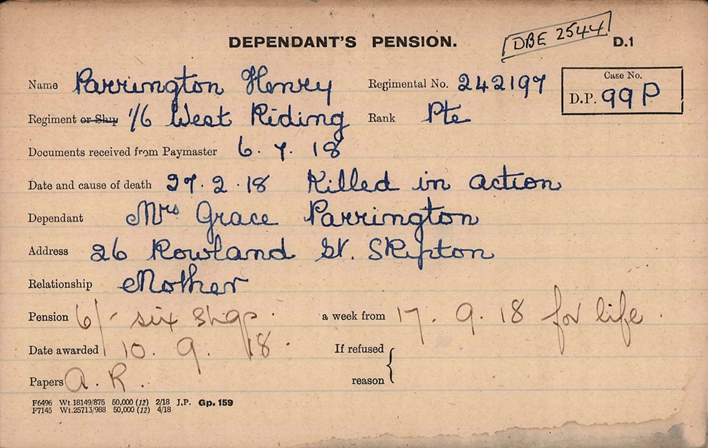 DEPENDANT'S PENSION. DBE 2544 D.1
Name Parrington Henry Regimental No. 242197 Case No. D.P. 99P
Regiment or Ship 1/6 West Riding Rank Pte
Documents received from Paymaster 6.7.18
Date and cause of death 27.2.18 Killed in action
Dependant Mrs Grace Parrington
Address 26 Rowland St. Skipton
Relationship Mother
Pension 6/- six Shgs. a week from 17.9.18 for life.
Date awarded 10.9.18. If refused
Papers A.R. reason
F6496 Wt.18149/875 50,000 (12) 2/18 J.P. Gp. 159
F7145 Wt.25713/988 50,000 (12) 4/18